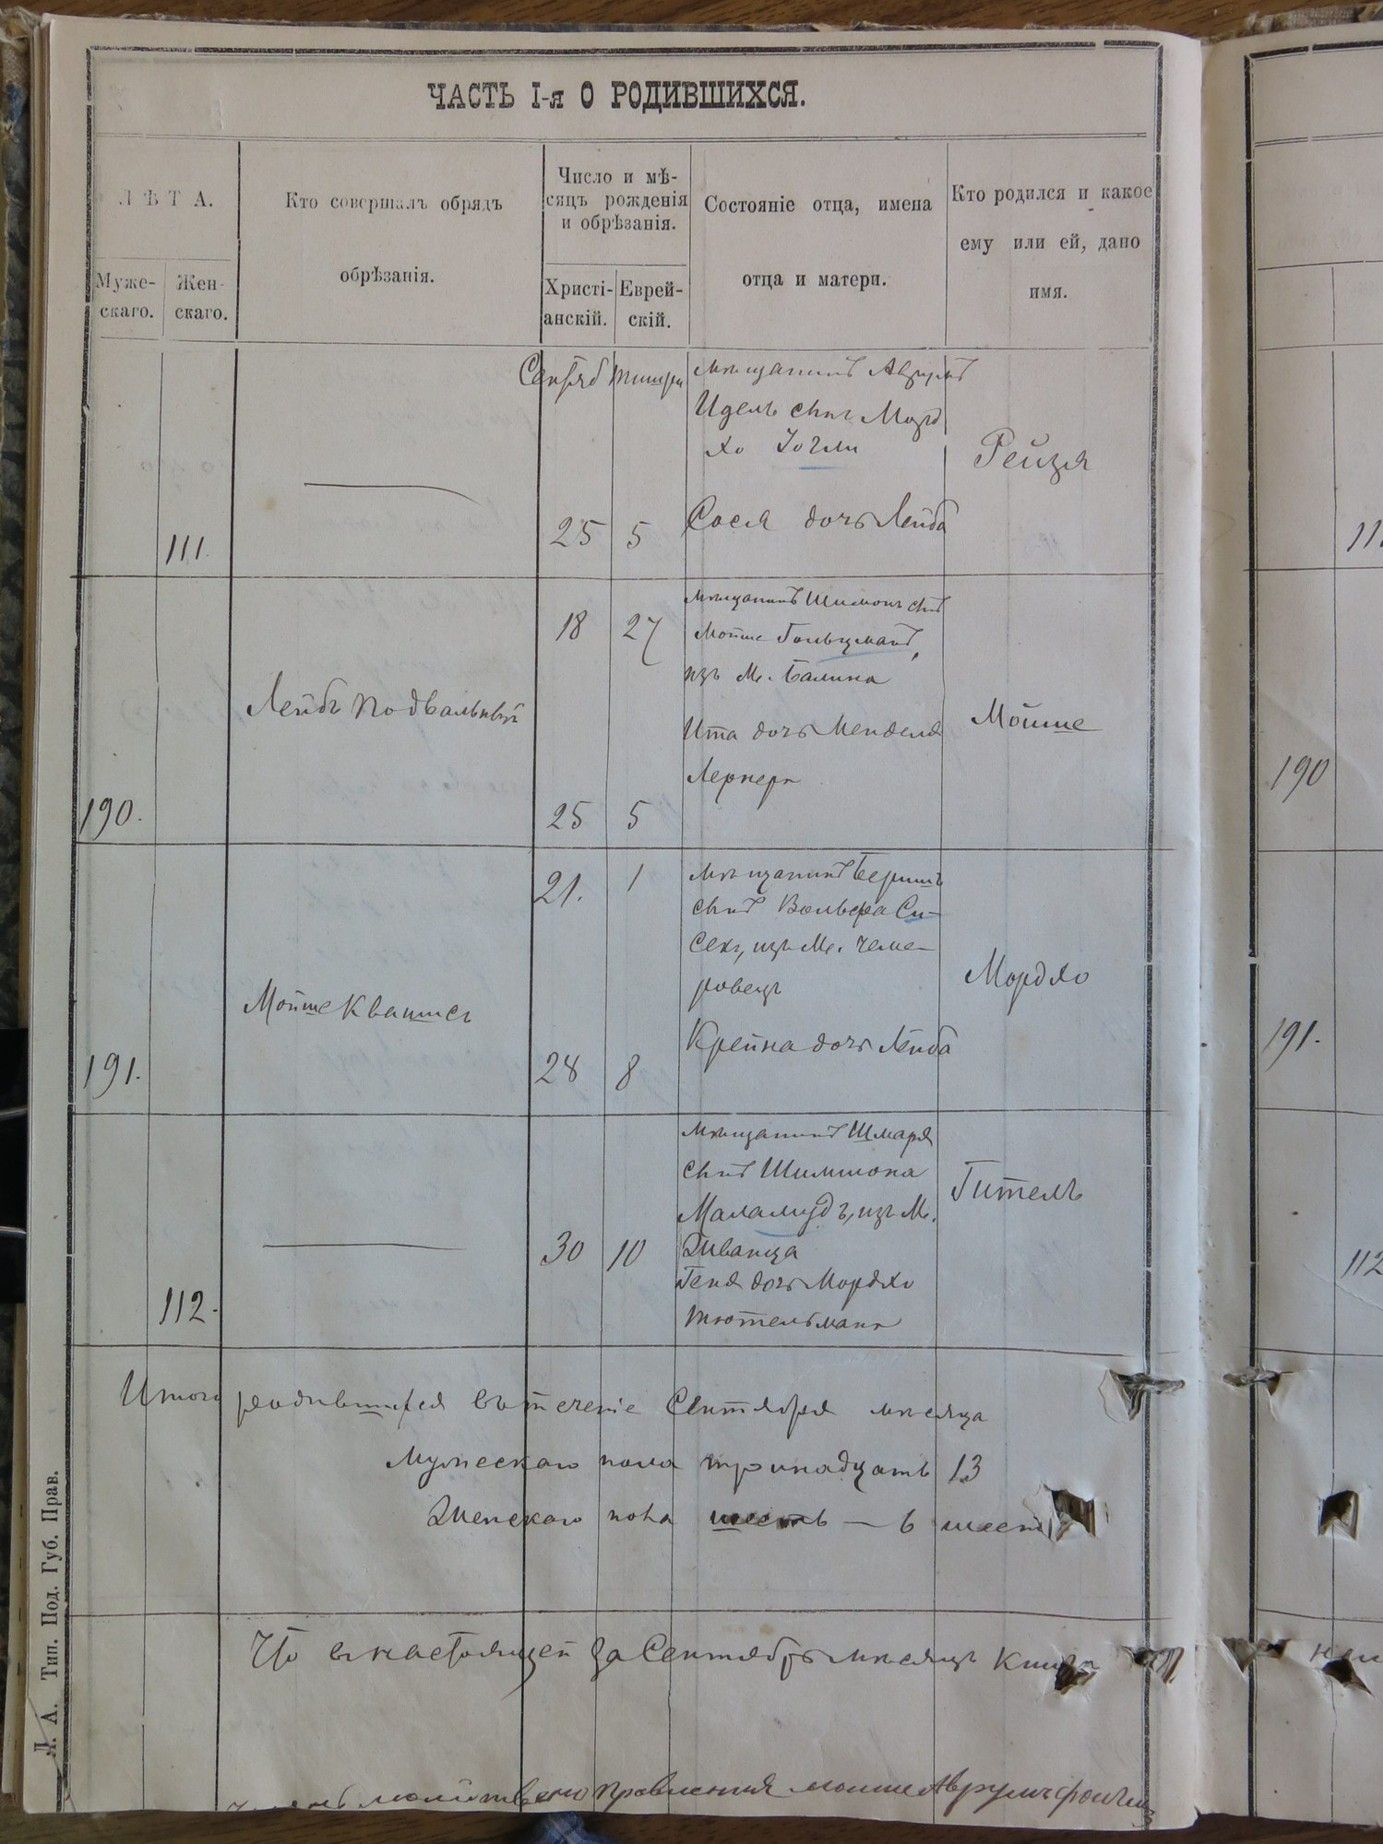 ЧАСТЬ I-я О РОДИВШИХСЯ.
ЛѢТА.
Муже-
скаго.
Жен-
скаго.
Кто совершалъ обрядъ
обрѣзанія.
Число и мѣ-
сяцъ рожденія
и обрѣзанія.
Христі-
анскій.
Еврей-
скій.
Состояніе отца, имена
отца и матери.
Кто родился и какое
ему или ей, дано
имя.
111.
Сентяб
25
Тишри
5
мѣщанинъ Аврумъ
Идель сынъ Морд
хо
Сося дочь Лейба
Рейзя
190.
Лейбъ Подвальный
18
25
27
5
мѣщанинъ Шимонъ сынъ
Мойше Гольцманъ,
изъ М. Балина
Ита дочь Менделя
Лернеръ
Мойше
191.
Мойше Квашисъ
21.
28
1
8
мѣщанинъ Беришъ
сынъ Вольфа Си-
секъ, изъ М. Чеме-
ровецъ
Крейна дочь Лейба
Мордхо
112.
30
10
мѣщанинъ Шмаря
сынъ Шимшона
Маламудъ, изъ М.
Жванца
Геня дочь Мордхо
Тютельманъ
Гитель
Итого родившихся въ теченіе Сентября мѣсяца
Мужескаго пола тринадцать 13
Женскаго пола шесть — 6 шесть
Что въ настоящей за Сентябрь мѣсяцъ книгѣ
молитвенно правленія Мойше Аврумъ
Л. А. Тип. Под. Губ. Прав.
11
190
191.
112